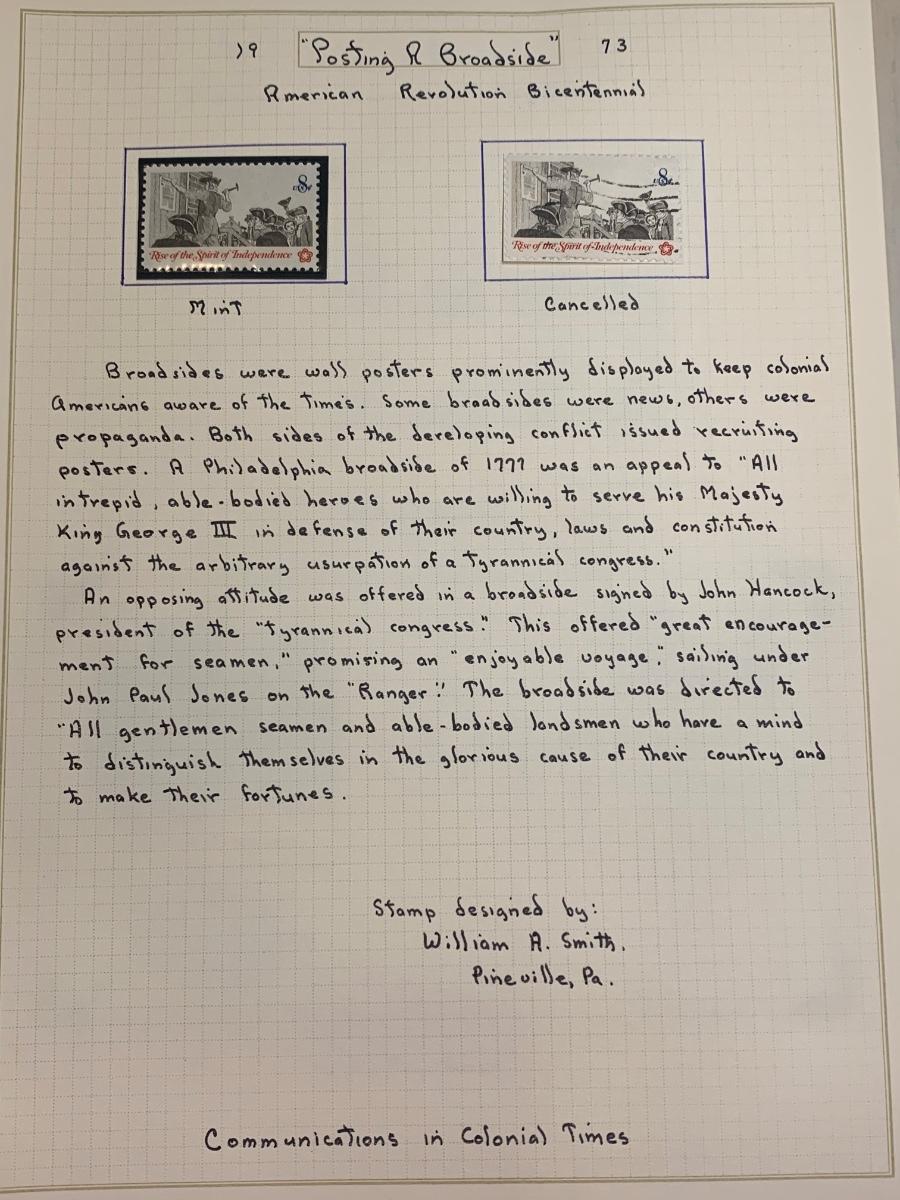 19 "Posting A Broadside" 73
American Revolution Bicentennial
8c
Rise of the Spirit of Independence
8c
Rise of the Spirit of Independence
Mint
Cancelled
Broadsides were wall posters prominently displayed to keep colonial
Americans aware of the times. Some broadsides were news, others were
propaganda. Both sides of the developing conflict issued recruiting
posters. A Philadelphia broadside of 1777 was an appeal to "All
intrepid, able-bodied heroes who are willing to serve his Majesty
King George III in defense of their country, laws and constitution
against the arbitrary usurpation of a tyrannical congress."
An opposing attitude was offered in a broadside signed by John Hancock,
president of the "tyrannical congress." This offered "great encourage-
ment for seamen," promising an "enjoyable voyage," sailing under
John Paul Jones on the "Ranger." The broadside was directed to
"All gentlemen seamen and able-bodied landsmen who have a mind
to distinguish themselves in the glorious cause of their country and
to make their fortunes.
Stamp designed by:
William A. Smith.
Pineville, Pa.
Communications in Colonial Times